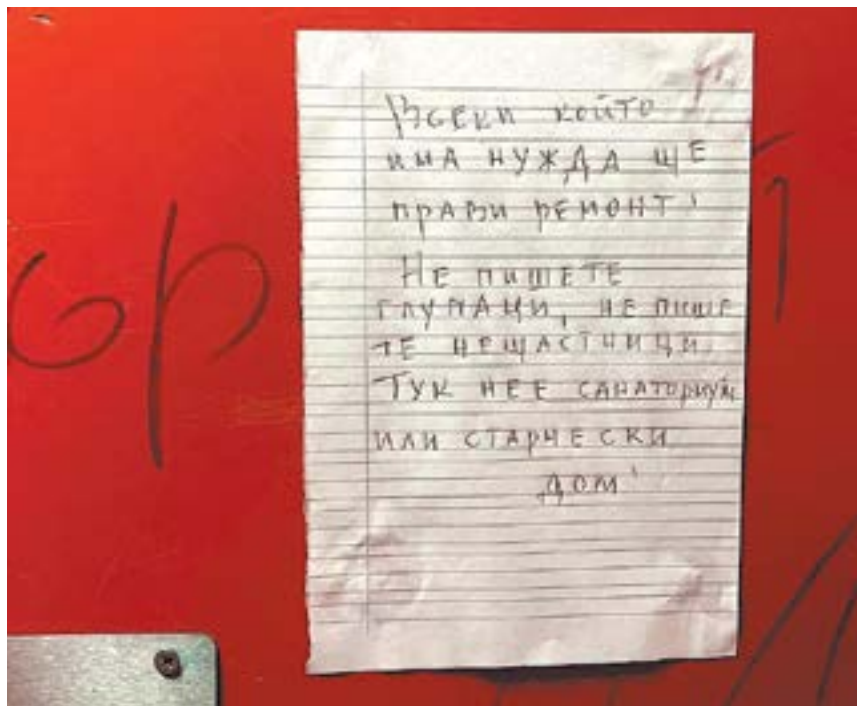 Всеки който
има нужда ще
прави ремонт!
Не пишете
глупаци, не пише
те нещастници.
Тук нее санаториум
или старчески
дом!